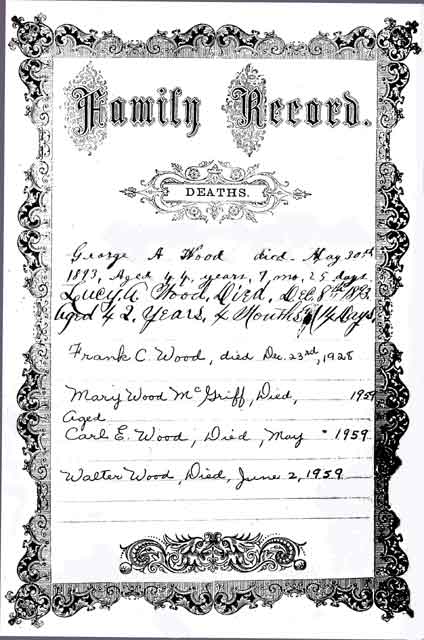 Family Record.
DEATHS.
George A Wood died May 30th
1893, Aged 44, years, 7 mo, 25 days.
Lucy A Wood, Died, DEC. 8th 1893.
Aged 42. Years, 4 Months, 14 Days
Frank C. Wood, died Dec. 23rd, 1928
Mary Wood McGriff, Died, 1959
Aged
Carl E. Wood, Died, May 1959
Walter Wood, Died, June 2, 1959